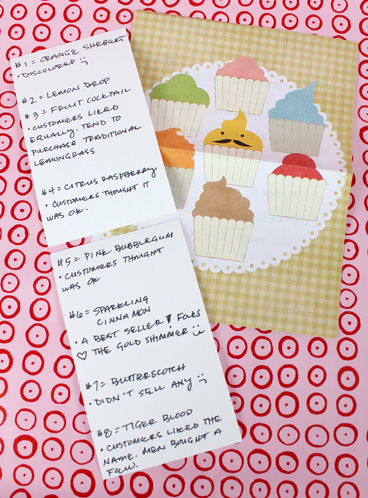 #1 = ORANGE SHERBERT
• DISCOLORED :(
#2 = LEMON DROP
#3 = FRUIT COCKTAIL
• CUSTOMERS LIKED
EQUALLY. TEND TO
PURCHASE TRADITIONAL
LEMONGRASS
#4 = CITRUS RASPBERRY
• CUSTOMERS THOUGHT IT
WAS OK.
#5 = PINK BUBBLEGUM
• CUSTOMERS THOUGHT
WAS OK
#6 = SPARKLING
CINNAMON
• A BEST SELLER! FOLKS
♡ THE GOLD SHIMMER :)
#7 = BUTTERSCOTCH
• DIDN'T SELL ANY :(
#8 = TIGER BLOOD
• CUSTOMERS LIKED THE
NAME. MEN BOUGHT A
FEW.